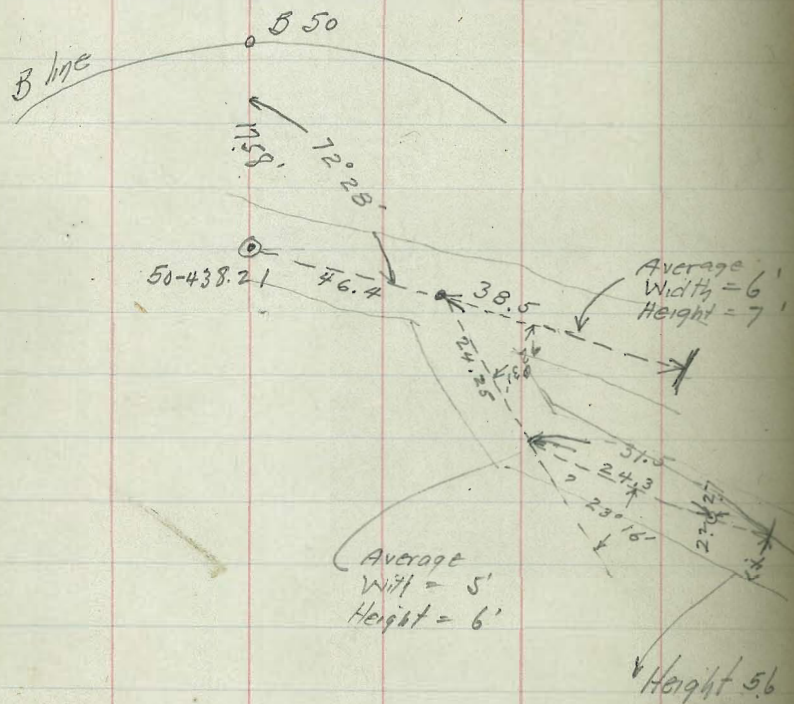 B 50
B line
72° 28'
50-438.21
46.4
38.5
Average
Width = 6'
Height = 7'
24.25
31.5
24.3
23° 16'
Average
With = 5'
Height = 6'
Height 5.6